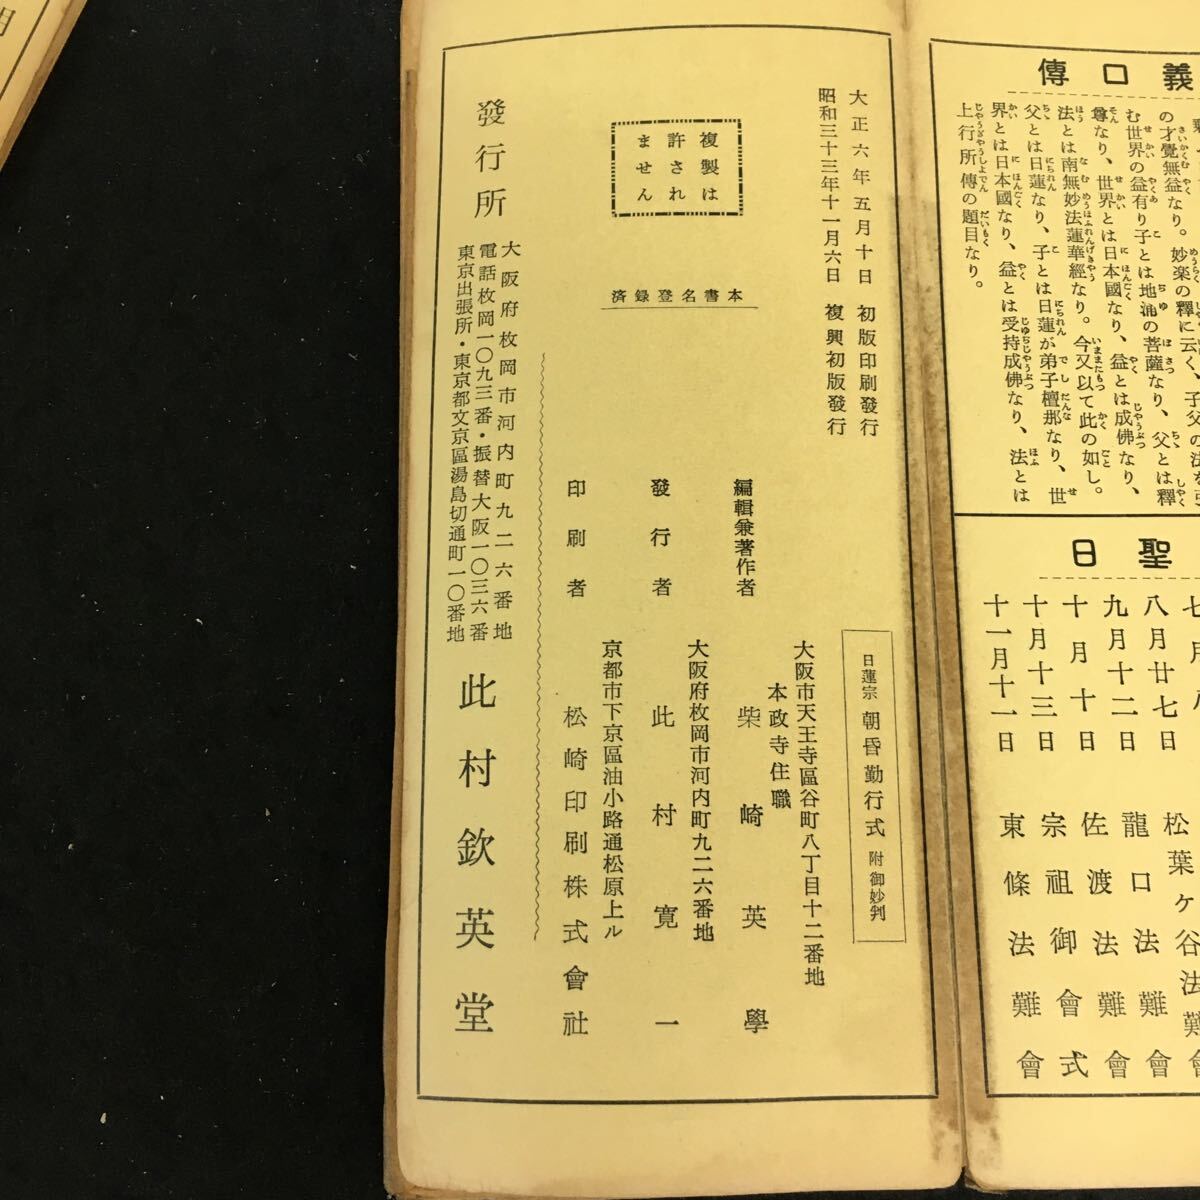 義口傳
の才覺無益なり。妙楽の釋に云く、子父の法を弘
む世界の益有り子とは地涌の菩薩なり、父とは釋
尊なり、世界とは日本國なり、益とは成佛なり、
法とは南無妙法蓮華經なり。今又以て此の如し。
父とは日蓮なり、子とは日蓮が弟子檀那なり、世
界とは日本國なり、益とは受持成佛なり、法とは
上行所傳の題目なり。
聖日
八月廿七日 松葉ヶ谷法難會
九月十二日 龍口法難會
十月十日 佐渡法難會
十月十三日 宗祖御會式
十一月十一日 東條法難會
大正六年五月十日 初版印刷發行
昭和三十三年十一月六日 複興初版發行
複製は
許され
ません
本書名登録済
日蓮宗 朝昏勤行式 附御妙判
大阪市天王寺區谷町八丁目十二番地
本政寺住職
編輯兼著作者 柴崎英學
大阪府枚岡市河内町九二六番地
發行者 此村寛一
京都市下京區油小路通松原上ル
印刷者 松崎印刷株式會社
大阪府枚岡市河内町九二六番地
電話枚岡一〇九三番・振替大阪一〇三六番
東京出張所・東京都文京區湯島切通町一〇番地
發行所 此村欽英堂